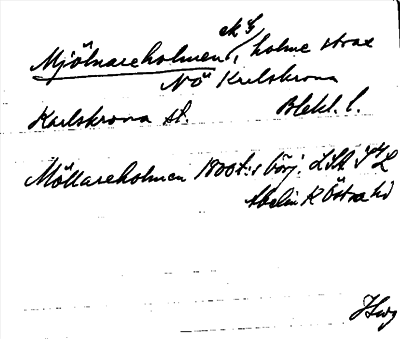 Mjölnareholmen, holme strax
NÖ Karlskrona
Karlskrona st. Blek. l.
Möllareholmen 1800t:s börj. LSA
Abelin K Östra hd